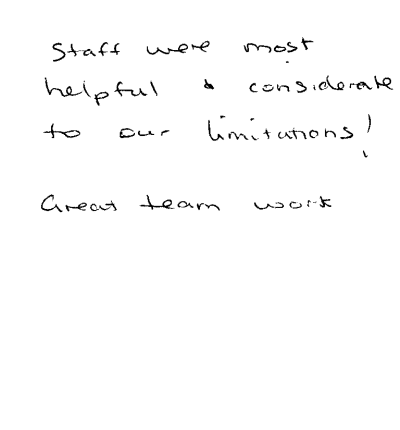 Staff were most
helpful & considerate
to our limitations!
Great team work